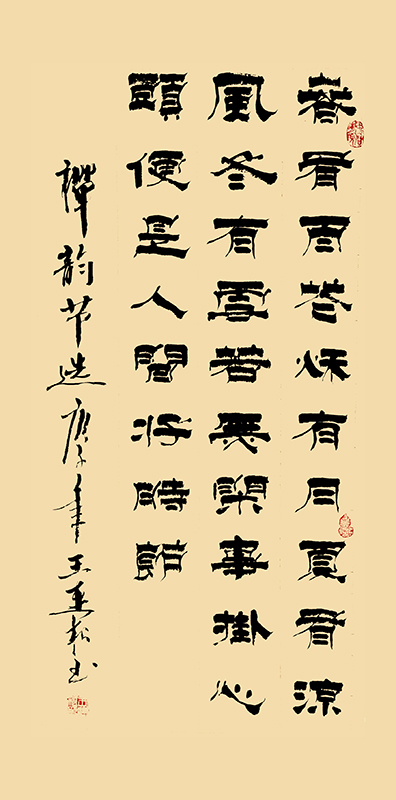 春有百花秋有月夏有涼
風冬有雪若無閑事掛心
頭便是人間好時節
禪韵节选庚子年王松书